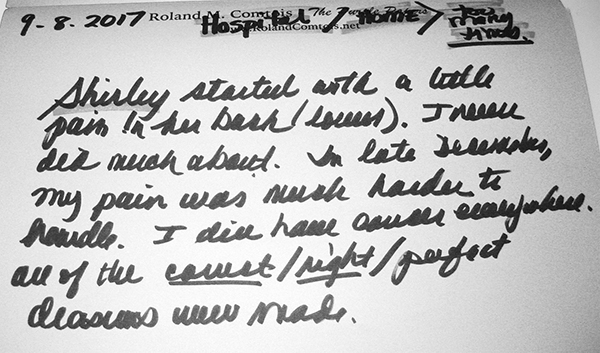 9-8.2017 Roland M. Comtois The
Hospital / HOME > Too
RolandComtois.net many
times.
Shirley started with a little
pain in her back (lower). I never
did much about. In late December,
my pain was much harder to
handle. I did have cancer everywhere.
all of the correct/right/perfect
decisions were made.